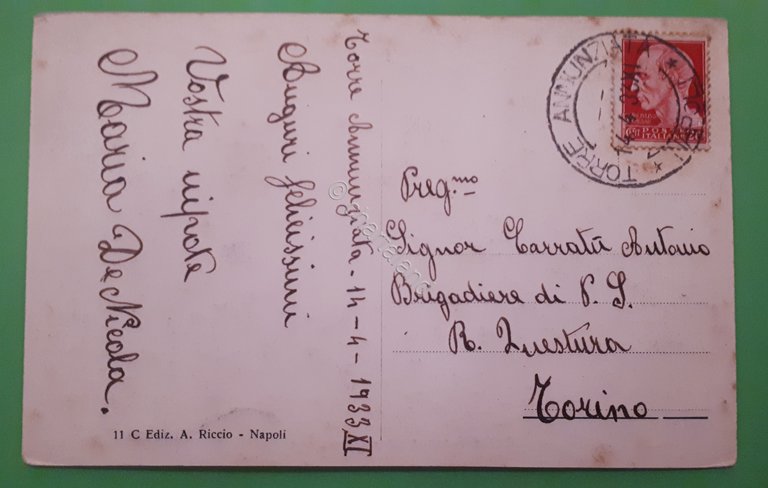 Torre Annunziata - 14 - 4 - 1933 XI
Auguri felicissimi
Vostra nipote
Maria De Nicola.
11 C Ediz. A. Riccio - Napoli
Preg.mo
Signor Carratù Antonio
Brigadiere di P. S.
R. Questura
Torino
TORRE ANNUNZIATA
POSTE
ITALIANE